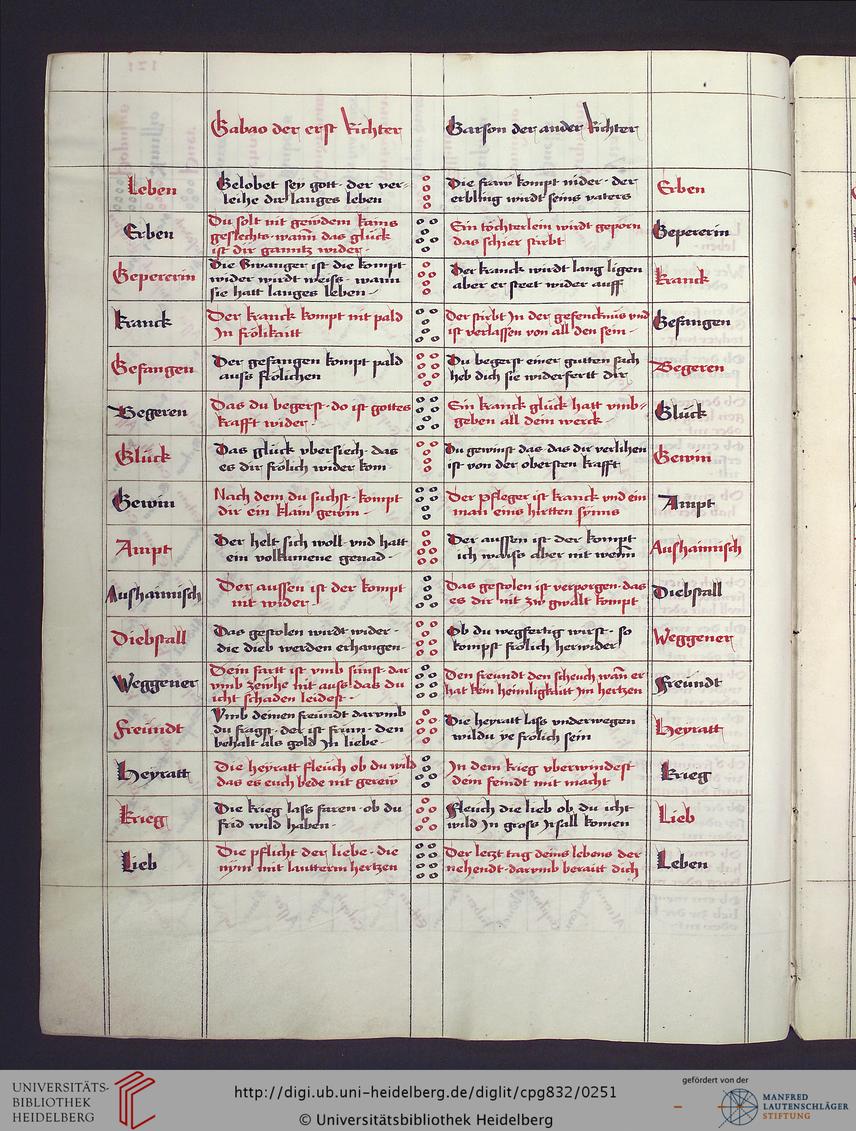 Gabao der erst Richter
Garson der ander Richter
Leben
Gelobet sey gott · der ver-
leihe dir langes leben
Die fraw kompt nider · der
erbling wirdt seins vaters
Erben
Erben
Du solt nit gewdem kains
geslechts · wann das glück
ist dir ganntz wider ·
Ein töchterlein wirdt geporn
das schier stirbt
Gepererin
Gepererin
Die Swanger ist die kompt
wider wirdt weiss · wann
sie hatt langes leben ·
Der kranck wirdt lang ligen
aber er steet wider auff
Kranck
Kranck
Der kranck kompt nit pald
Jn frölikaitt
Der stirbt Jn der gefencknüs vnd
ist verlassen von all den sein ·
Gefangen
Gefangen
Der gefangen kompt pald
auss frölichen
Du begerst einer gutten sach
heb dich sie widerfertt dir
Begeren
Begeren
Das du begerst · do ist gottes
krafft wider ·
Ein kranck glück hatt vmb-
geben all dein werck ·
Glück
Glück
Das glück vbersiech · das
es dir frölich wider kom
Du gewinst das · das dir verlihen
ist von der obersten krafft
Gewin
Gewin
Nach dem du suchst · kompt
dir ein klain gewin ·
Der pfleger ist kranck vnd ein
man eins hertten synns
Ampt
Ampt
Der helt sich woll vnd hatt
ein volkumene genad ·
Der aussen ist der kompt
ich waiss aber nit wenn
Aushaimisch
Aushaimisch
Der aussen ist der kompt
nit wider ·
Das gestolen ist verporgen · das
es dir nit zw gwalt kompt
Diebstall
Diebstall
Das gestolen wirdt wider ·
die dieb werden erhangen
Ob du wegfertig wirst · so
kompst frölich herwider
Weggener
Weggener
Dein fartt ist vmb sünst · dar
vmb zeuhe nit auss das du
icht schaden leidest ·
Den freundt den scheuch wann er
hat kein heimligkaitt Jm hertzen
Freündt
Freündt
Vmb deinen freündt darvmb
du fragst · der ist frum · den
behalt als gold Jn liebe ·
Die heyratt lass vnderwegen
wildu ye frölich sein
Heyratt
Heyratt
Die heyratt fleuch ob du wild
das es euch bede nit gerew
Jn dem krieg vberwindest
dein feindt mit macht
Krieg
Krieg
Die krieg lass faren · ob du
frid wild haben ·
Fleuch die lieb ob du icht
wild Jn gross Jrsall komen
Lieb
Lieb
Die pflicht der liebe · die
nym mit lautterm hertzen
Der letzt tag deins lebens der
nehendt · darvmb beraitt dich
Leben
UNIVERSITÄTS-
BIBLIOTHEK
HEIDELBERG
http://digi.ub.uni-heidelberg.de/diglit/cpg832/0251
© Universitätsbibliothek Heidelberg
gefördert von der
MANFRED
LAUTENSCHLÄGER
STIFTUNG